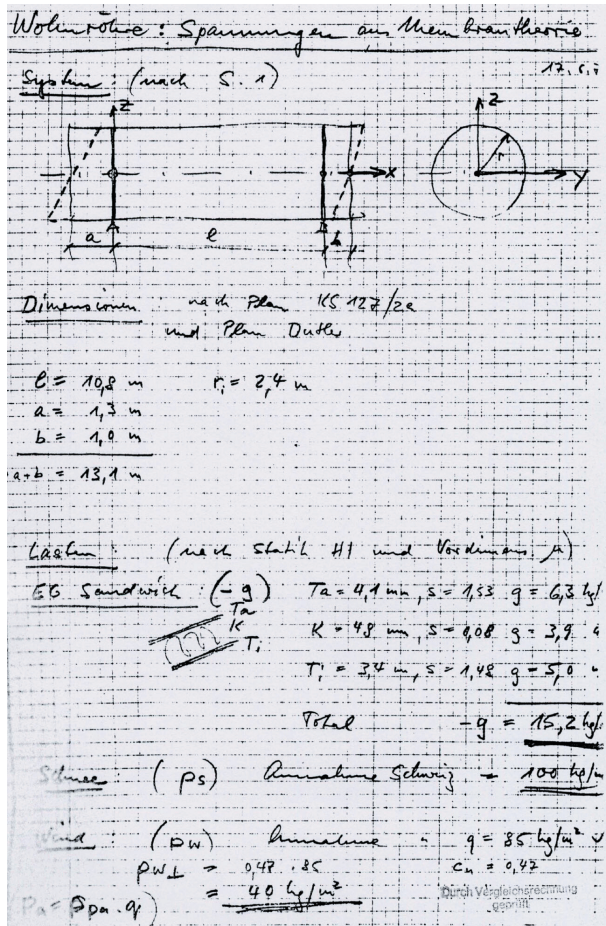 Wohnröhre: Spannungen aus Membrantheorie
System: (nach S. 1)
z
z
r
x
y
A
B
a
l
b
Dimensionen nach Plan KS 127/2a
und Plan
l = 10,8 m ri = 2,4 m
a = 1,3 m
b = 1,0 m
a+b = 13,1 m
Lasten: (nach Statik H1 und Vordimens.
EG Sandwich: (-g) Ta = 4,1 mm, s = 1,53 g = 6,3 kg/
Ta
K
Ti
K = 48 mm, s = 0,08 g = 3,9 "
Ti = 3,4 m, s = 1,48 g = 5,0 "
Total -g = 15,2 kg/
Schnee: (ps) Annahme Schweiz = 100 kg/m
Wind: (pw) Annahme " q = 85 kg/m²
pw⊥ = 0,47 . 85 cn = 0,47
= 40 kg/m²
Durch Vergleichsrechnung
geprüft